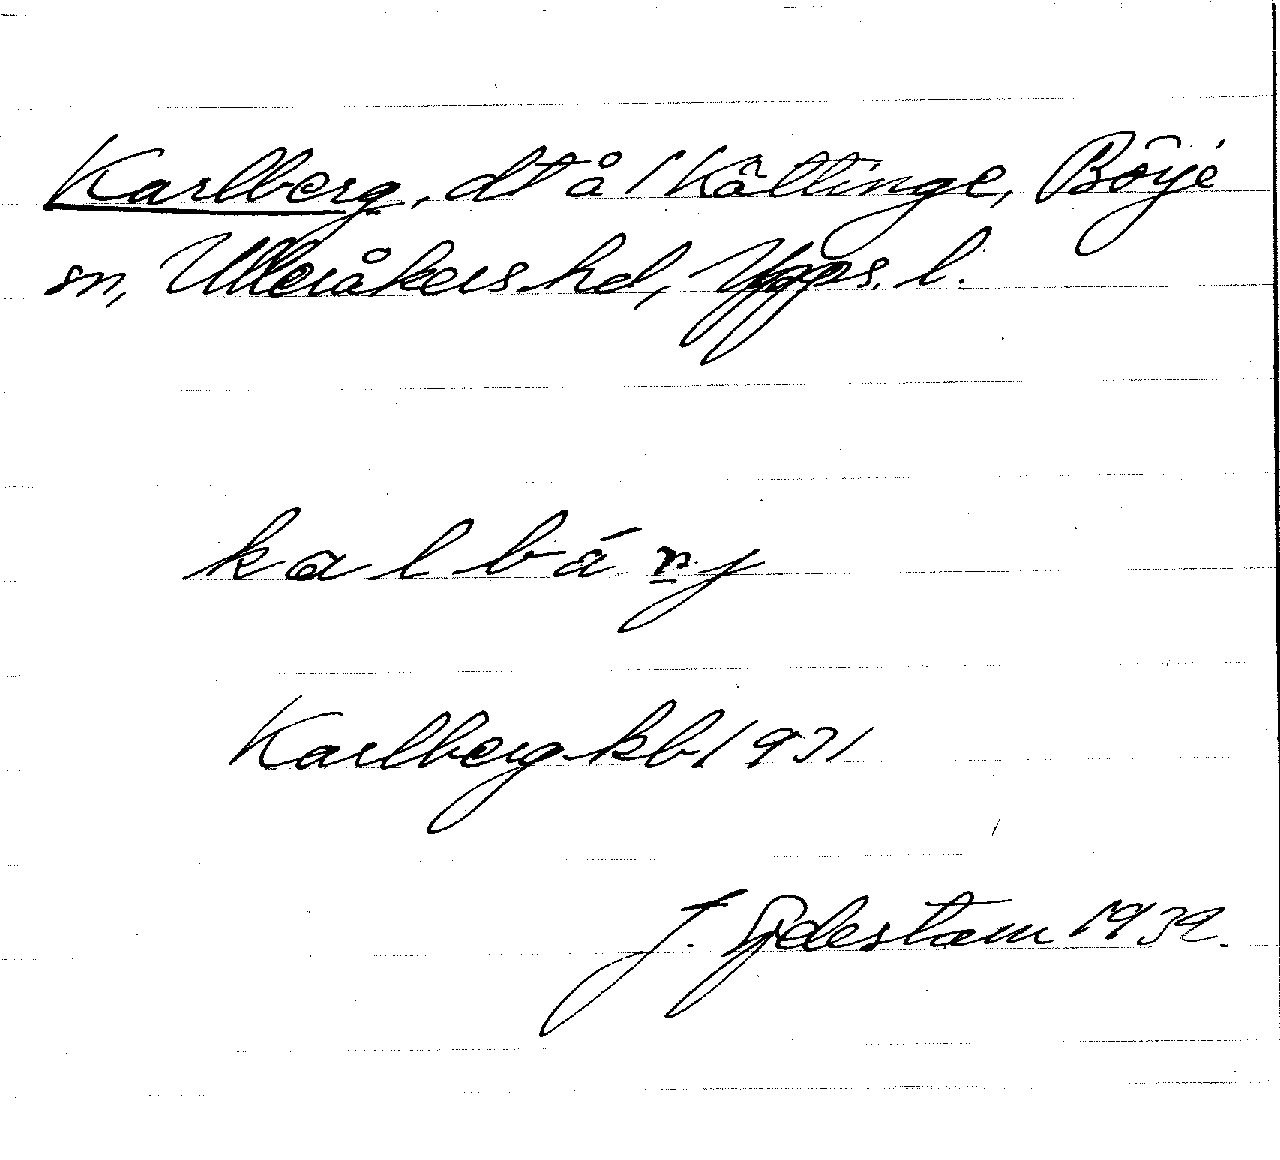 Karlberg, dt å 1 Kättinge, Böje
sn, Ulleråkers hd, Upps. l.
kalbárj
Karlberg kb 1931
J. Sjdestam 1932.